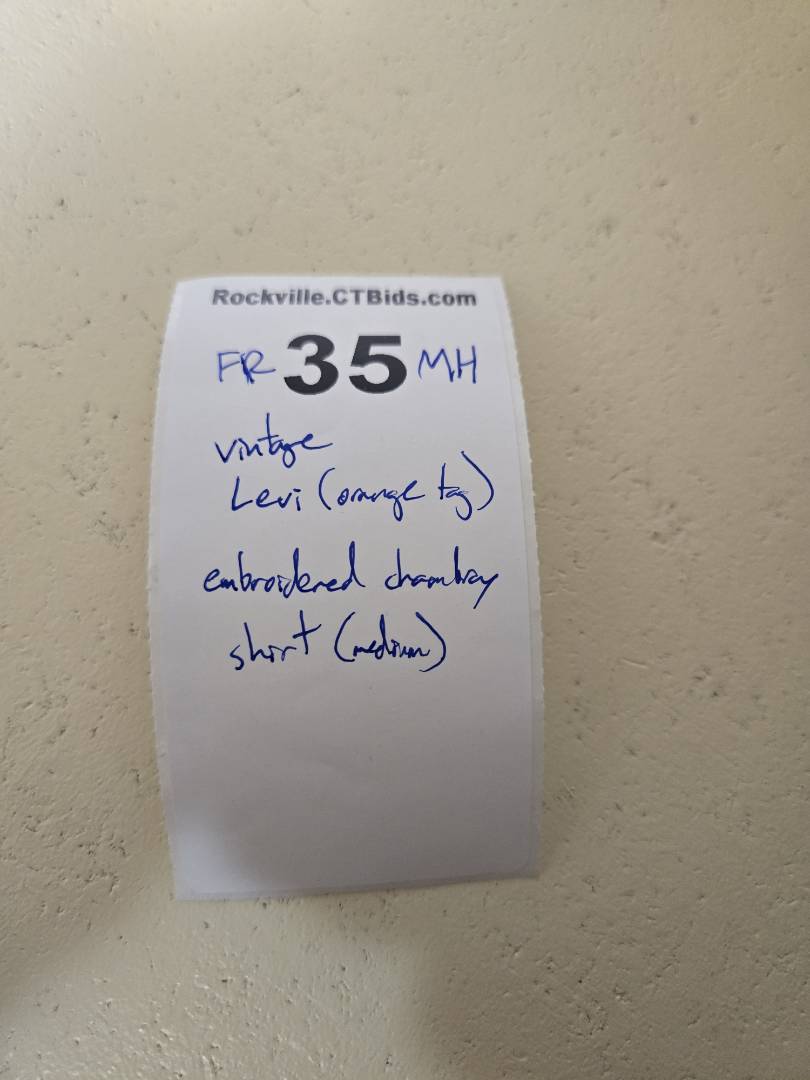 Rockville.CTBids.com
FR 35 MH
vintage
Levi (orange tag)
embroidered chambray
shirt (medium)